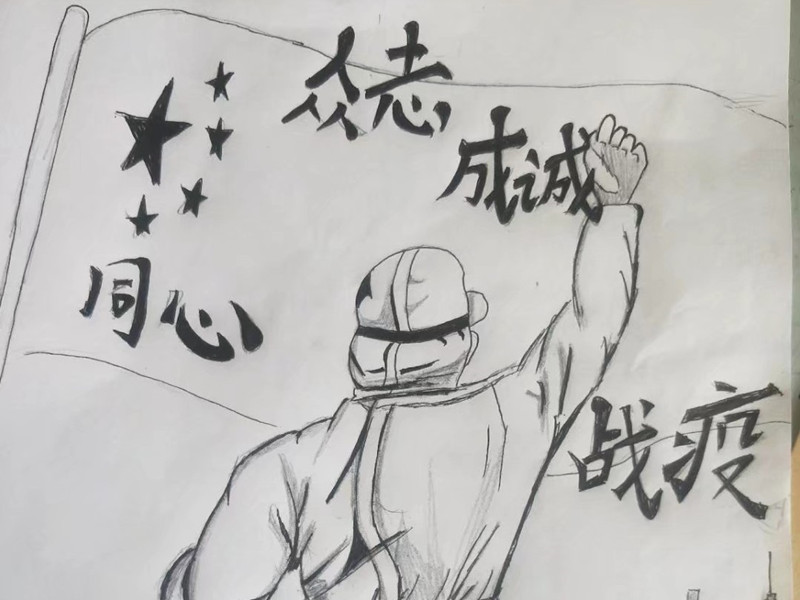 众志
成诚
同心
战疫